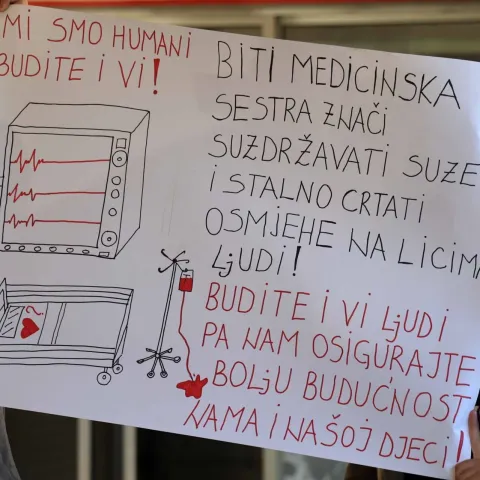 MI SMO HUMANI
BUDITE I VI!
BITI MEDICINSKA
SESTRA ZNAČI
SUZDRŽAVATI SUZE
I STALNO CRTATI
OSMJEHE NA LICIMA
LjUDI!
BUDITE I VI LjUDI
PA NAM OSIGURAJTE
BOLjU BUDUĆNOST
NAMA I NAŠOJ DJECI!
?